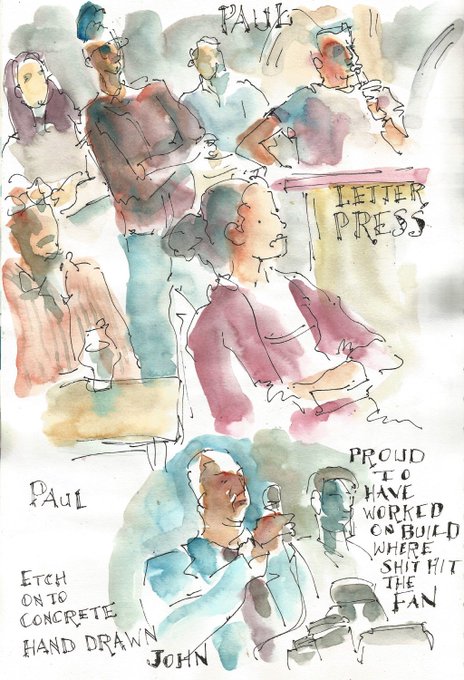 PAUL
LETTER
PRESS
PAUL
PROUD
TO
HAVE
WORKED
ON BUILD
WHERE
SHIT HIT
THE
FAN
ETCH
ON TO
CONCRETE
HAND DRAWN
JOHN